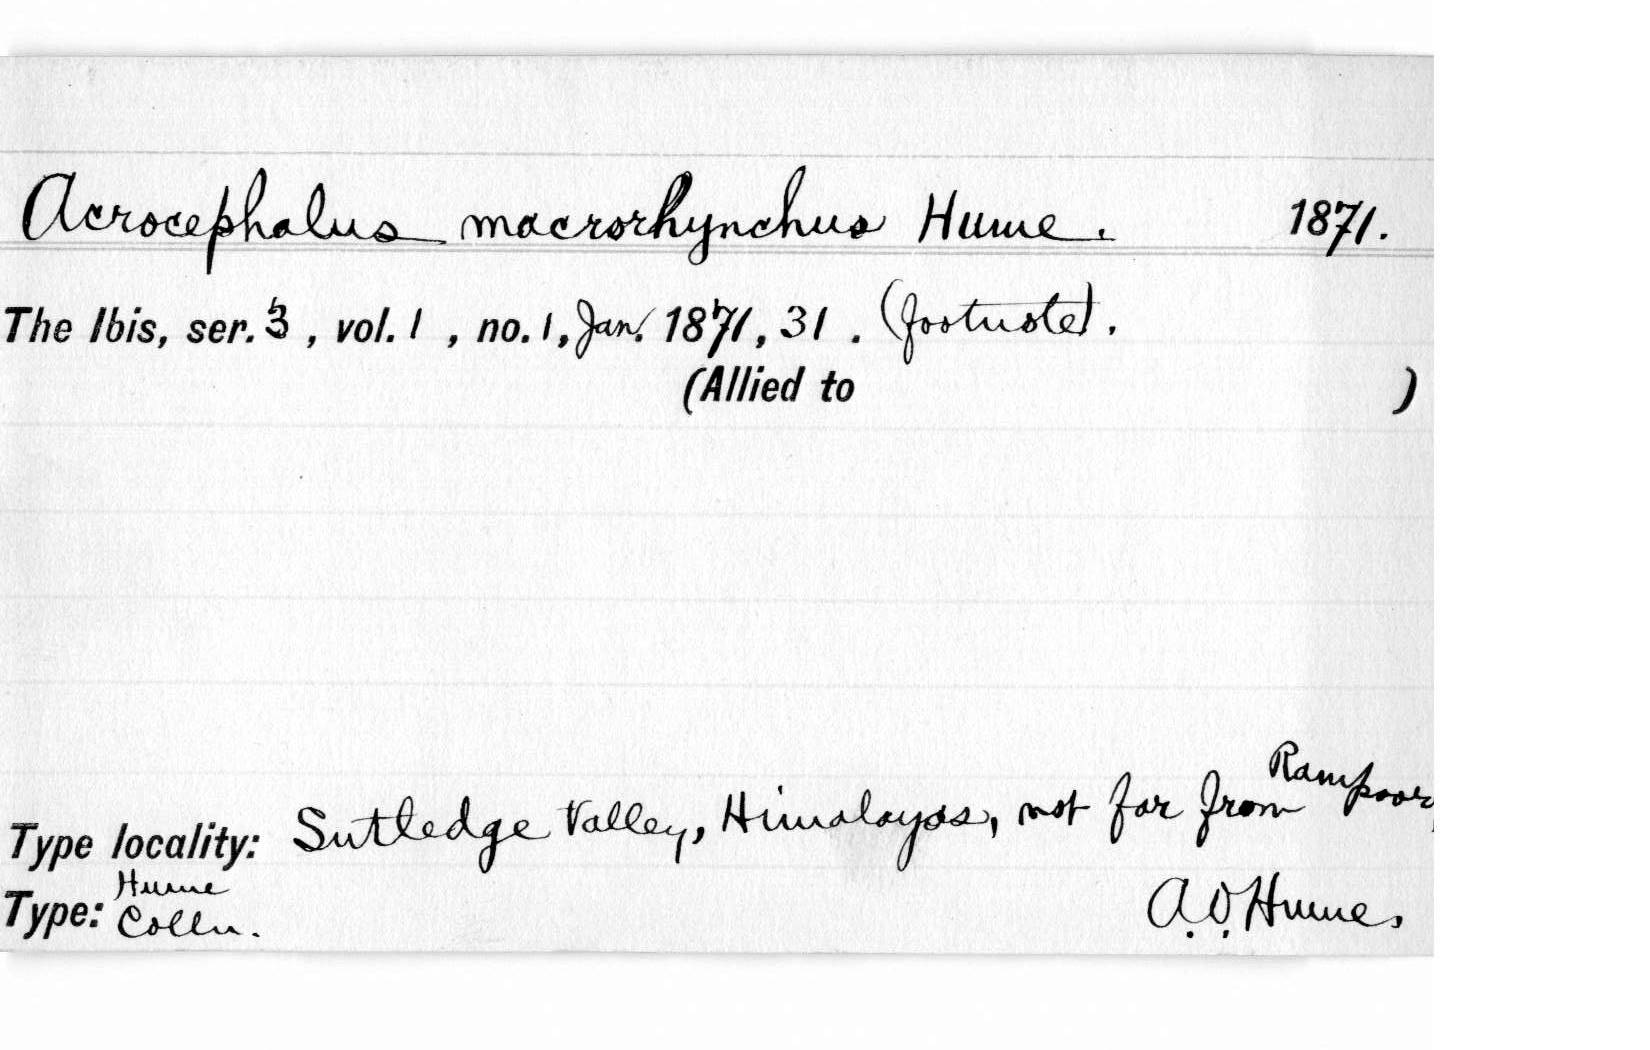 Acrocephalus macrorhynchus Hume. 1871.
The Ibis, ser. 3, vol. 1, no. 1, Jan. 1871, 31. (footnote).
(Allied to )
Type locality: Sutledge Valley, Himalayas, not far from Rampoor,
Type: Hume Colln. A.O. Hume.